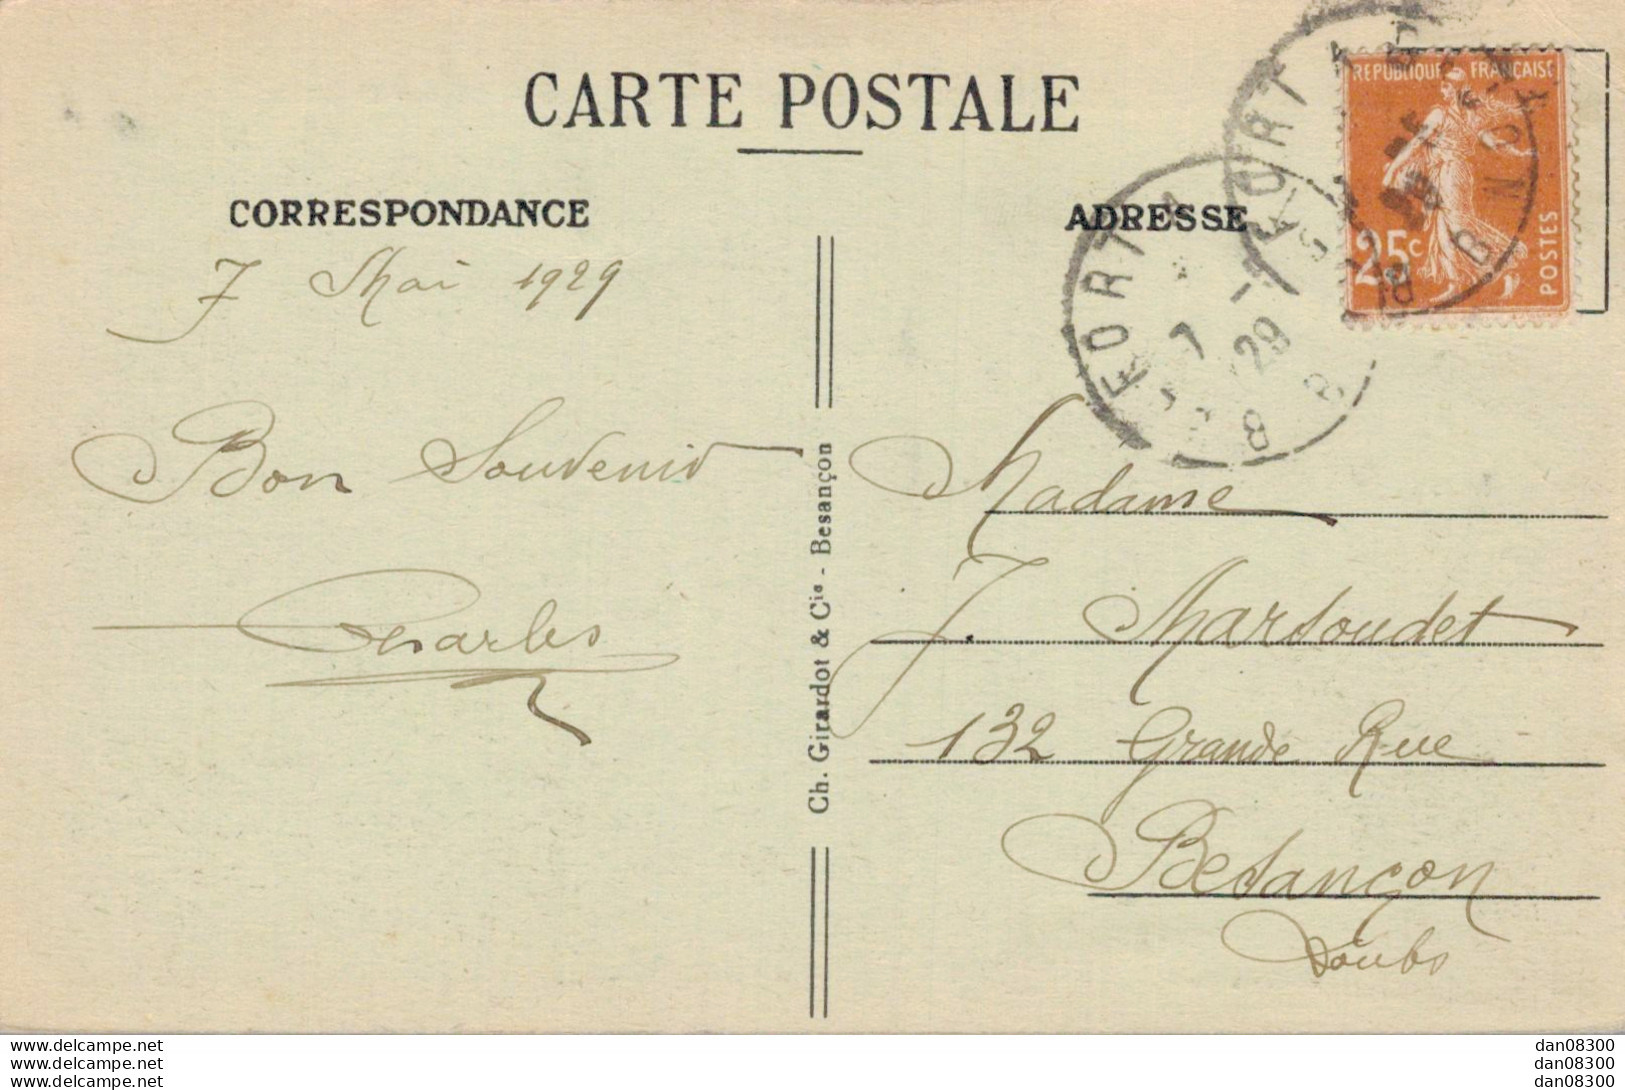 CARTE POSTALE
CORRESPONDANCE
ADRESSE
REPUBLIQUE FRANÇAISE
25c
POSTES
FORT
29
7 Mai 1929
Bon Souvenir
Charles
Ch. Girardot & Cie - Besançon
Madame
J. Marsoudet
132 Grande Rue
Besançon
Doubs
www.delcampe.net
www.delcampe.net
www.delcampe.net
dan08300
dan08300
dan08300